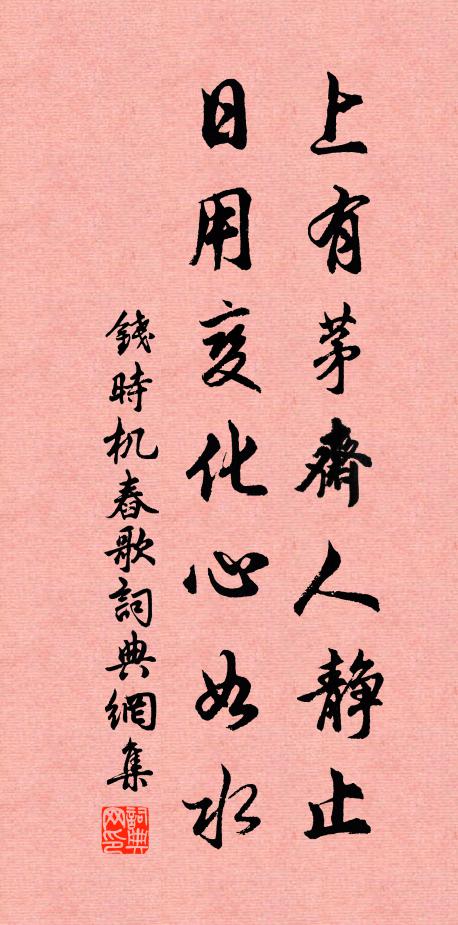 上有茅齋人静止
日用变化心如水
錢時机春歌詞典網集
詞典网印